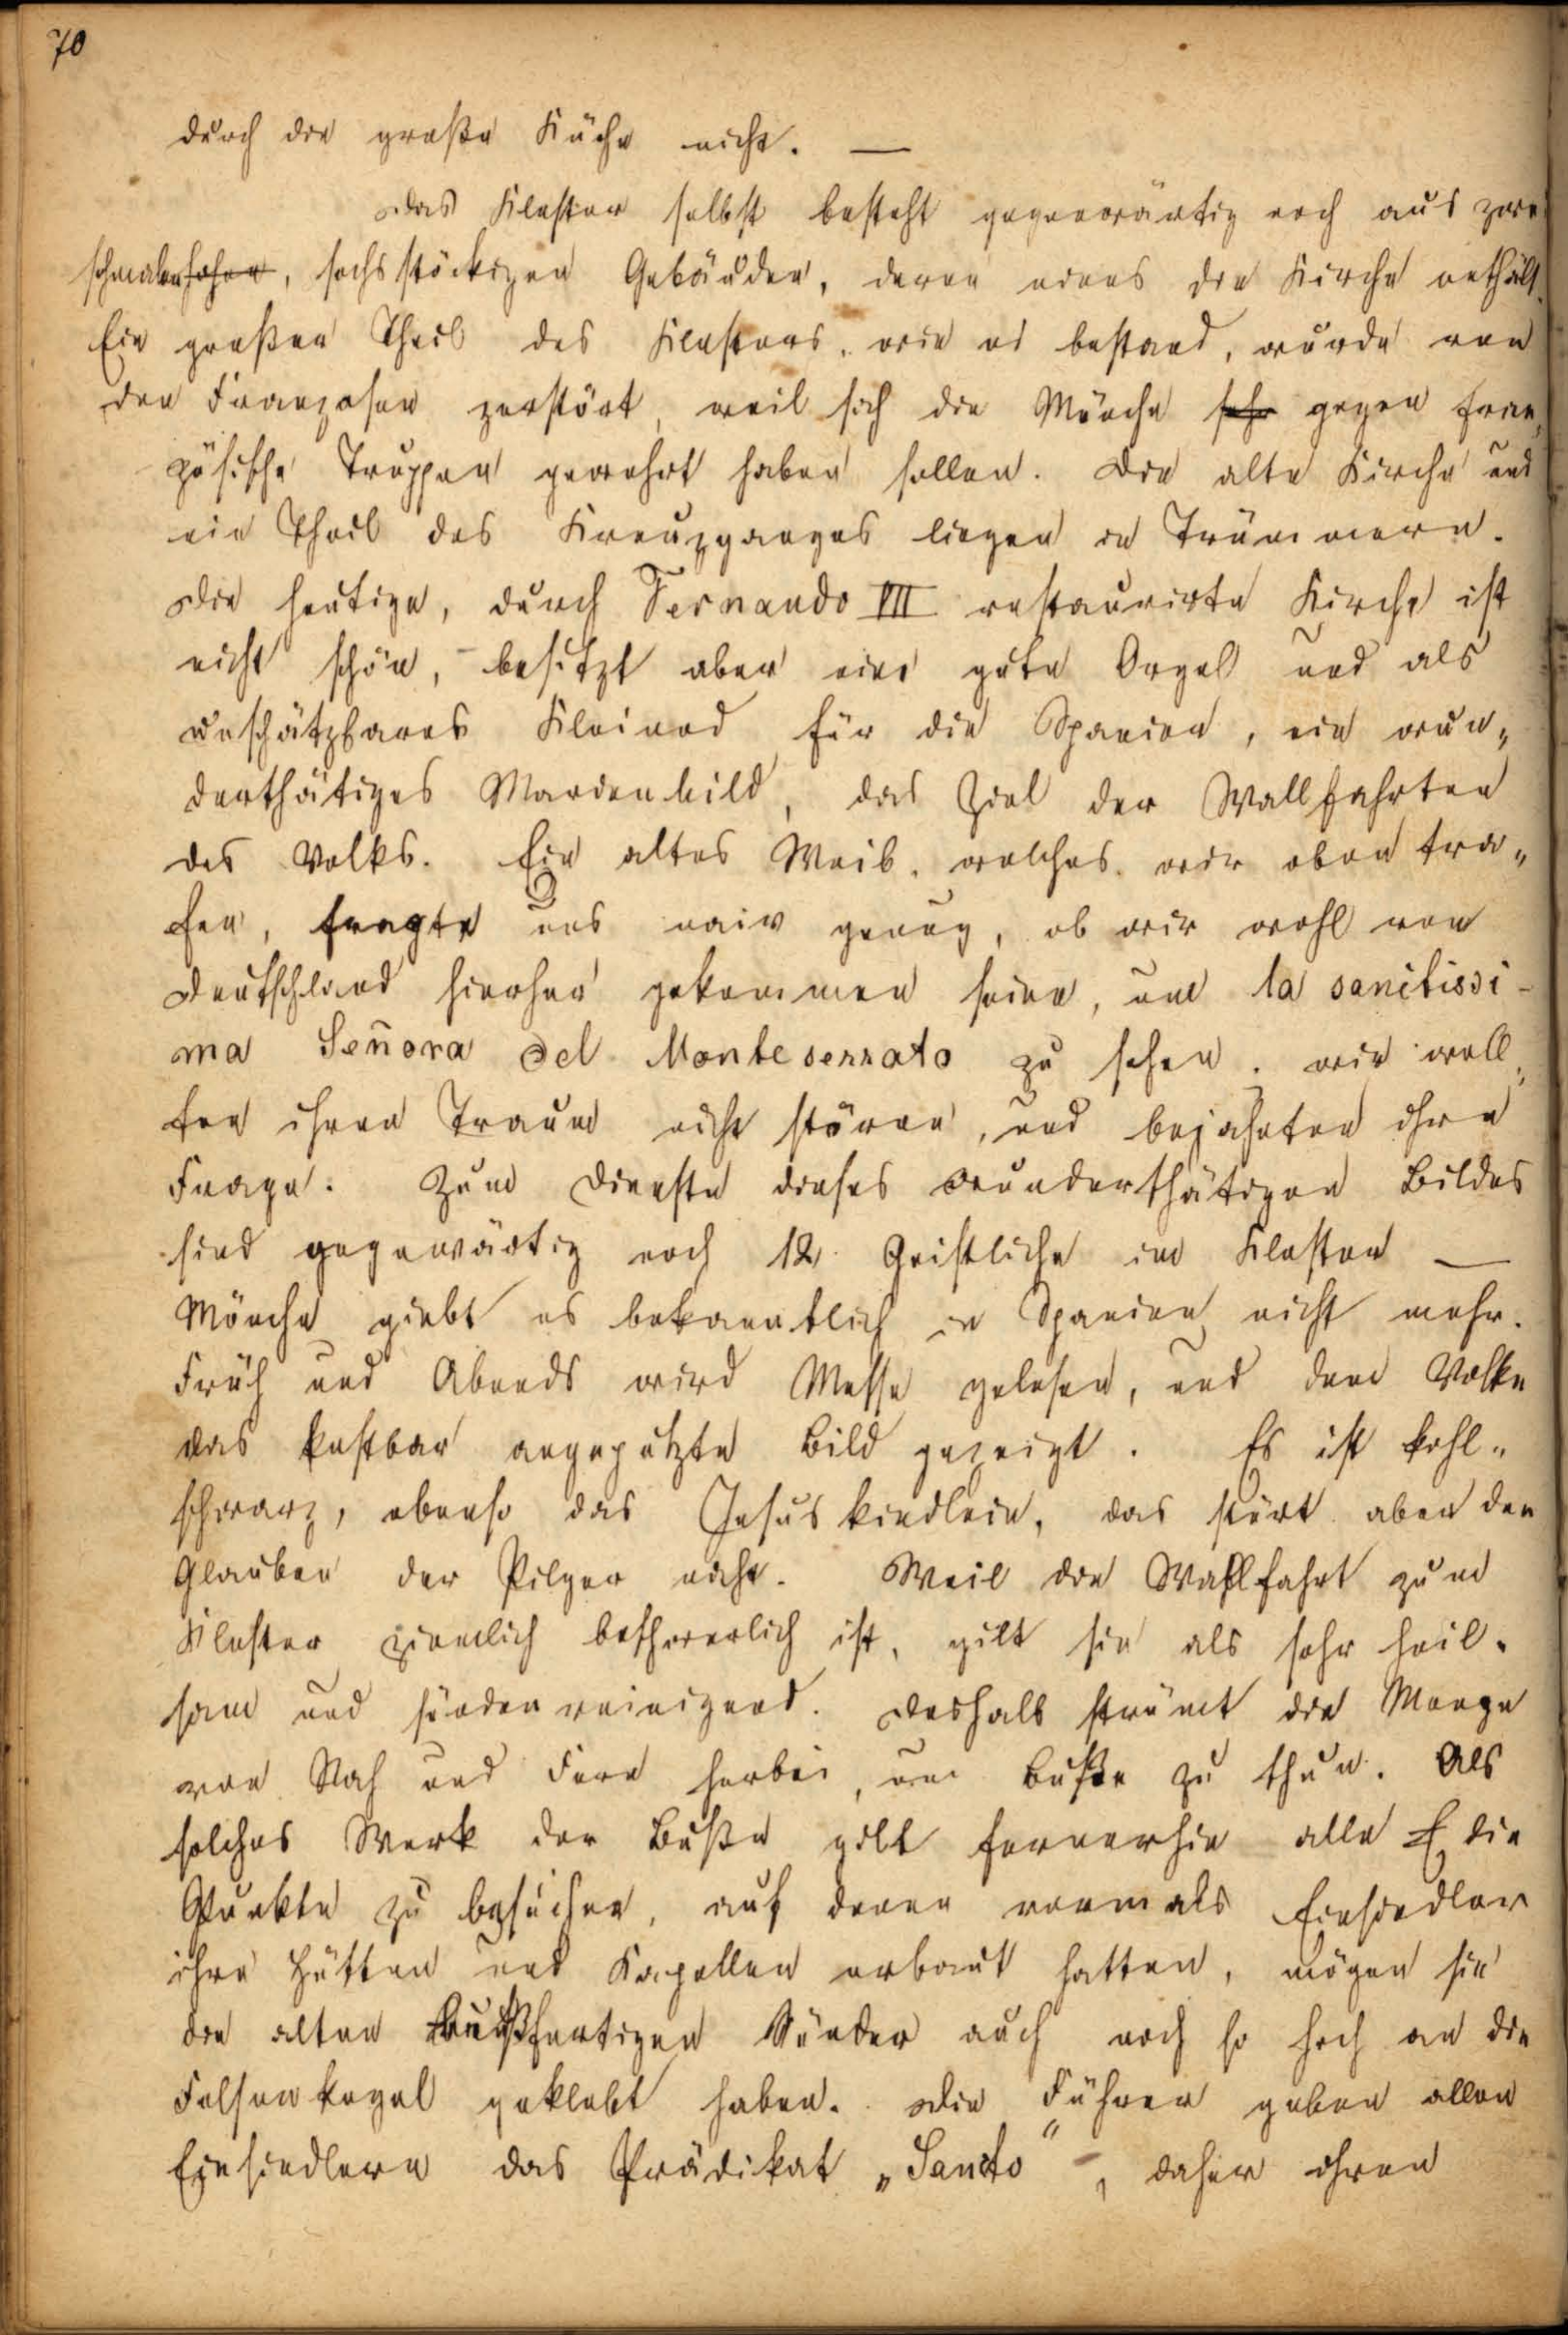 70
durch die große Küche nicht. —
Das Kloster selbst besteht gegenwärtig noch aus zwei
schmalen ~~hohen~~, sechsstöckigen Gebäuden, deren eines die Kirche enthält.
Ein großer Theil des Klosters, wie es bestand, wurde von
den Franzosen zerstört, weil sich die Mönche ~~sehr~~ gegen fran„
zösische Truppen gewehrt haben sollen. Die alte Kirche und
ein Theil des Kreuzganges liegen in Trümmern.
Die heutige, durch Fernando VII restaurirte Kirche ist
nicht schön, besitzt aber eine gute Orgel und als
unschätzbares Kleinod für die Spanier, ein wun„
derthätiges Marienbild, das Ziel der Wallfahrten
des Volks. Ein altes Weib, welches wir oben tra„
fen, fragte uns naiv genug, ob wir wohl von
Deutschland hierher gekommen seien, um la sanctissi-
ma Señora del Monteserrato zu sehen. Wir woll„
ten ihren Traum nicht stören, und bejahten ihre
Frage. Zum Dienste dieses wunderthätigen Bildes
sind gegenwärtig noch 12 Geistliche im Kloster —
Mönche giebt es bekanntlich in Spanien nicht mehr.
Früh und Abends wird Messe gelesen, und dem Volke
das kostbar angeputzte Bild gezeigt. Es ist kohl„
schwarz, ebenso das Jesuskindlein, das stört aber den
Glauben der Pilger nicht. Weil die Wallfahrt zum
Kloster ziemlich beschwerlich ist, gilt sie als sehr heil„
sam und sündenreinigend. Deshalb strömt die Menge
von Nah und Fern herbei, um Buße zu thun. Als
solches Werk der Buße gilt fernerhin alle die
Punkte zu besuchen, auf denen vormals Einsiedler
ihre Hütten und Kapellen erbaut hatten, mögen sie
die alten bußfertigen Sünder auch noch so hoch an die
Felsenkegel geklebt haben. Die Führer geben allen
Einsiedlern das Prädikat „Sancto“, daher ihren